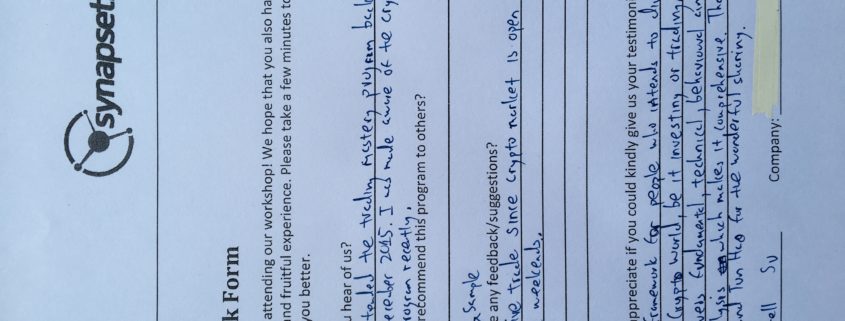 synapse
k Form
attending our workshop! We hope that you also ha
and fruitful experience. Please take a few minutes to
you better.
u hear of us?
tended the trading mastery program back
cember 2015. I was made aware of the cry
rogram recently.
recommend this program to others?
e any feedback/suggestions?
Sample
ive trade since crypto market is open
weekends.
appreciate if you could kindly give us your testimoni
framework for people who intends to di
Crypto world, be it investing or trading,
vers fundamental, technical, behavioural an
lysis which makes it comprehensive. Tha
nd for the wonderful sharing.
ell Su
Company: